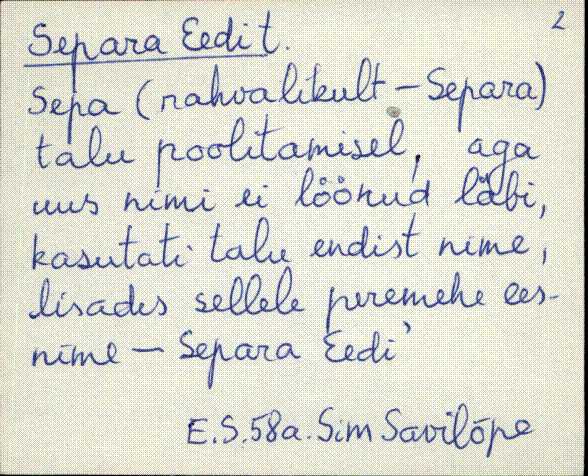 2
Separa Eedi t.
Sepa (rahvalikult - Separa)
talu poolitamisel, aga
uus nimi ei löönud läbi,
kasutati talu endist nime,
lisades sellele peremehe ees-
nime - Separa Eedi'
E.S.58a. Sim Savilõpe